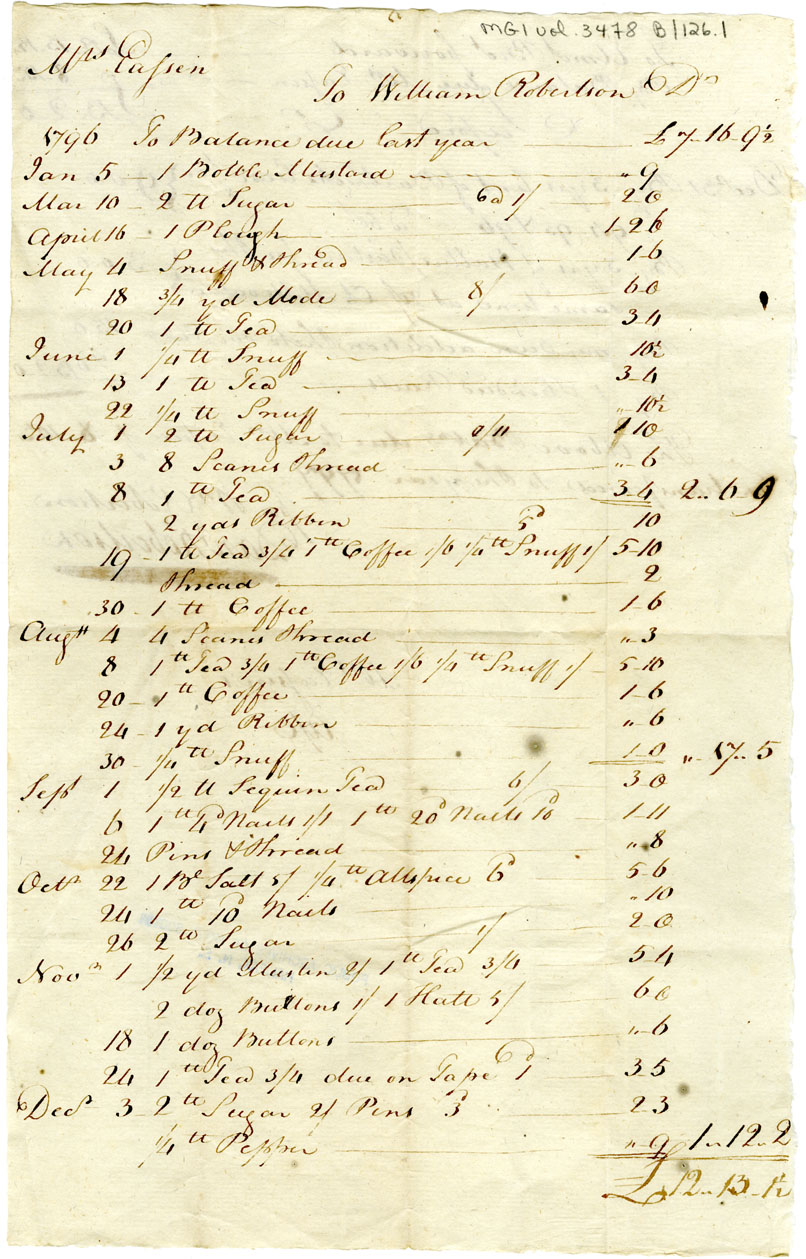 MG1 vol. 3478 B/126.1
Mrs Eassen
To William Robertson Dr
1796 To Balance due last year £7-16-9½
Jan 5 - 1 Bottle Mustard „ 9
Mar 10 - 2 tt Sugar 1/ 2 0
April 16 - 1 Plough 1-2 6
May 4 Snuff & Thread 1-6
18 3/4 yd Mode 8/ 6 0
20 1 tt Tea 3 4
June 1 1/4 tt Snuff 10½
13 1 tt Tea 3-4
22 1/4 tt Snuff „ 10½
July 1 2 tt Sugar 1 10
3 8 Scanes Thread „ 6
8 1 tt Tea 3-4 2 „ 6 9
2 yds Ribbin 5d 10
19 - 1 tt Tea 3/4 1 tt Coffee 1/6 1/4 tt Snuff 1/ 5-10
Thread 2
30 - 1 tt Coffee 1-6
Augt 4 4 Scanes Thread „ 3
8 1 tt Tea 3/4 1 tt Coffee 1/6 1/4 tt Snuff 1/ 5-10
20 - 1 tt Coffee 1-6
24 - 1 yd Ribbin „ 6
30 - 1/4 tt Snuff 1-0 „ 17 „ 5
Sept 1 1/2 tt Sequin Tea 6/ 3 0
6 1 tt 4d Nails 1/1 1 tt 20d Nails 10 1-11
24 Pins & Thread „ 8
Octr 22 1 Bl Salt 5/ 1/4 tt Allspice 6d 5-6
24 1 tt 10 Nails „ 10
26 2 tt Sugar 1/ 2 0
Novr 1 1/2 yd Muslin 2/ 1 tt Tea 3/4 5 4
2 doz Buttons 1/ 1 Hatt 5/ 6 0
18 1 doz Buttons „ 6
24 1 tt Tea 3/4 due on Tape 1 3 5
Decr 3 - 2 tt Sugar 2/ Pins 3 2 3
1/4 tt Pepper „ 9 1 „ 12 „ 2
£12 „ 13 - 1½